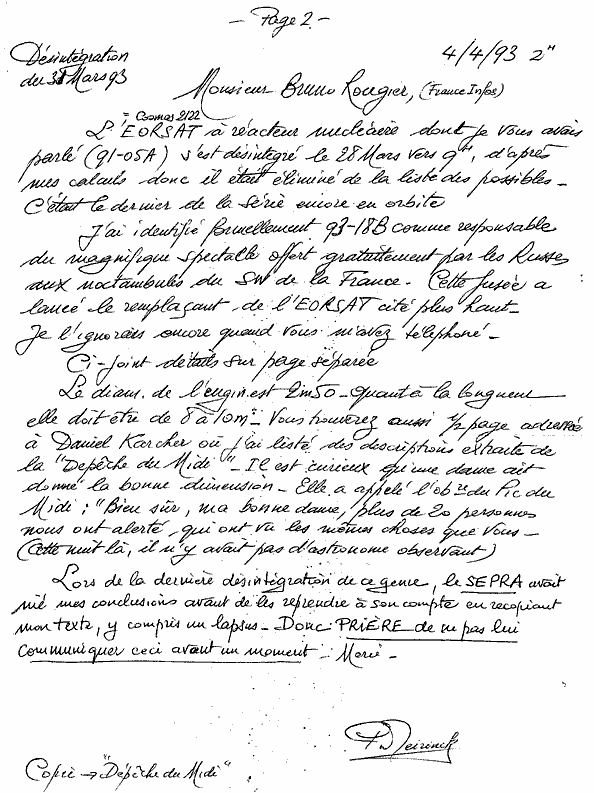 - Page 2 -
Désintégration
du 31 Mars 93
4/4/93 2ᴴ
Monsieur Bruno Rougier, (France Infos)
= Cosmos 2122
L'EORSAT à réacteur nucléaire dont je vous avais
parlé (91-05A) s'est désintégré le 28 Mars vers 9ᴴ, d'après
mes calculs donc il était éliminé de la liste des possibles -
C'était le dernier de la série encore en orbite
J'ai identifié formellement 93-18B comme responsable
du magnifique spectacle offert gratuitement par les Russes
aux noctambules du SW de la France. Cette fusée a
lancé le remplaçant de l'EORSAT cité plus haut -
Je l'ignorais encore quand vous m'avez téléphoné -
Ci-joint détails sur page séparée
Le diam. de l'engin est 2m50 - Quant à la longueur
elle doit être de 8 à 10m - Vous trouverez aussi 1/2 page adressée
à Daniel Karcher où j'ai listé des descriptions extraite de
la "Depêche du Midi" - Il est curieux qu'une dame ait
donné la bonne dimension - Elle a appelé l'obʳᵉ du Pic du
Midi : "Bien sûr, ma bonne dame, plus de 20 personnes
nous ont alerté, qui ont vu les mêmes choses que vous -
(Cette nuit là, il n'y avait pas d'astronome observant)
Lors de la dernière désintégration de ce genre, le SEPRA avait
nié mes conclusions avant de les reprendre à son compte en recopiant
mon texte, y compris un lapsus - Donc PRIÈRE de ne pas lui
communiquer ceci avant un moment - Merci -
P. Neirinck
Copie → "Dépêche du Midi"